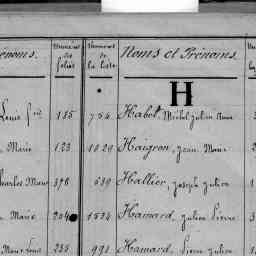 énoms. Numéros des folios Numéros de la liste Noms et Prénoms.
H
Louis 185 754 Habet, Michel Julien Anne
Marie 123 1029 Haigron, Jean Marie
Charles Marie 378 639 Hallier, Joseph Julien
Marie 204 1534 Hamard, Julien Pierre
235 991 Hamard, Pierre Julien